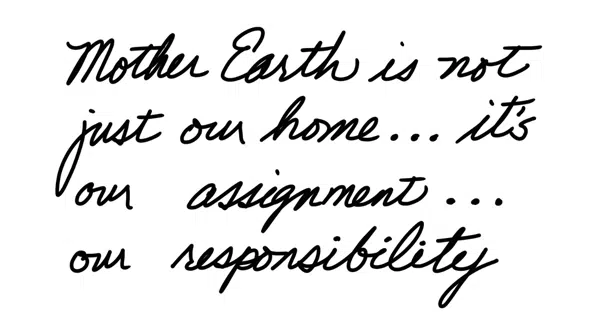 Mother Earth is not
just our home... it's
our assignment...
our responsibility